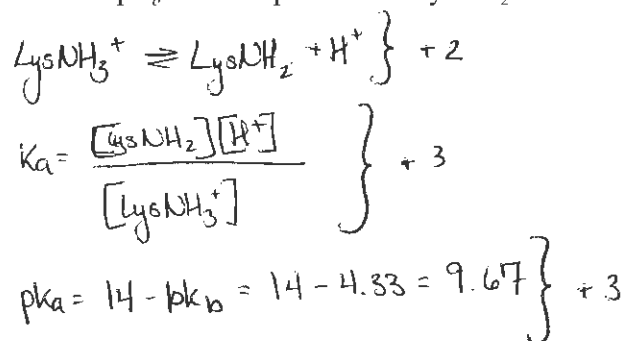 LysNH₃⁺ ⇌ LysNH₂ + H⁺ } + 2
Ka = [LysNH₂][H⁺] / [LysNH₃⁺] } + 3
pKa = 14 - pKb = 14 - 4.33 = 9.67 } + 3